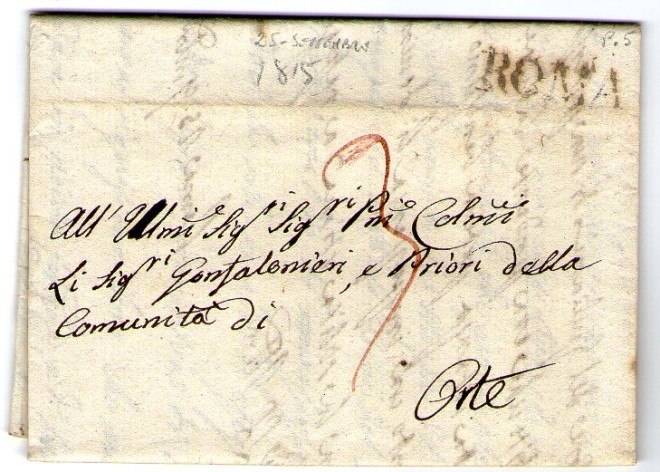 25-Settembre P.5
1815
ROMA
3
All' Illmi Sigri Sigri Pni Colmi
Li Sigri Gonfalonieri, e Priori della
Comunità di
Orte